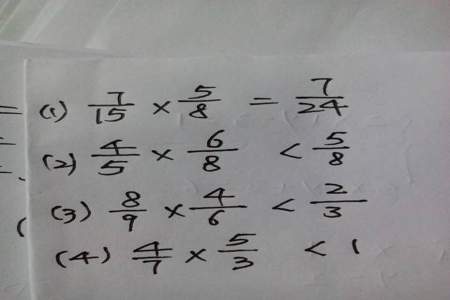 (1) 7/15 × 5/8 = 7/24
(2) 4/5 × 6/8 < 5/8
(3) 8/9 × 4/6 < 2/3
(4) 4/7 × 5/3 < 1